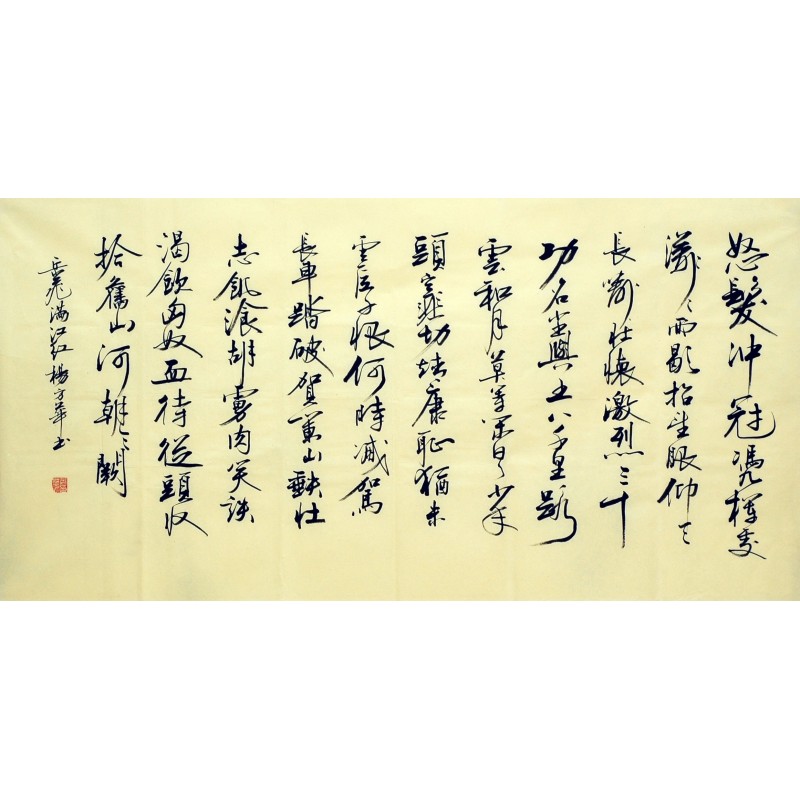 怒髮冲冠憑欄處
瀟々雨歇抬望眼仰天
長嘯壯懷激烈三十
功名塵與土八千里路
雲和月莫等閑白少年
頭空悲切靖康恥猶未
雪臣子恨何時滅駕
長車踏破賀蘭山缺壯
志飢湌胡虜肉笑談
渴飲匈奴血待從頭收
拾舊山河朝天闕
岳飛满江红 楊方華书